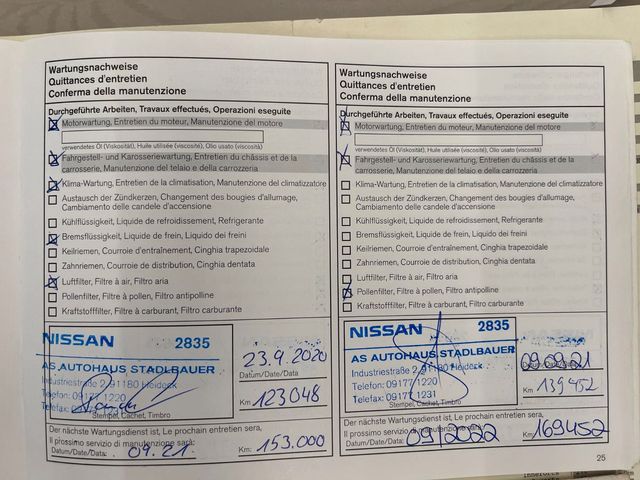 Wartungsnachweise
Quittances d'entretien
Conferma della manutenzione
Durchgeführte Arbeiten, Travaux effectués, Operazioni eseguite
Motorwartung, Entretien du moteur, Manutenzione del motore
verwendetes Öl (Viskosität), Huile utilisée (viscosité), Olio usato (viscosità)
Fahrgestell- und Karosseriewartung, Entretien du châssis et de la
carrosserie, Manutenzione del telaio e della carrozzeria
Klima-Wartung, Entretien de la climatisation, Manutenzione del climatizzatore
Austausch der Zündkerzen, Changement des bougies d'allumage,
Cambiamento delle candele d'accensione
Kühlflüssigkeit, Liquide de refroidissement, Refrigerante
Bremsflüssigkeit, Liquide de frein, Liquido dei freini
Keilriemen, Courroie d'entraînement, Cinghia trapezoidale
Zahnriemen, Courroie de distribution, Cinghia dentata
Luftfilter, Filtre à air, Filtro aria
Pollenfilter, Filtre à pollen, Filtro antipolline
Kraftstofffilter, Filtre à carburant, Filtro carburante
NISSAN 2835
AS AUTOHAUS STADLBAUER
Industriestraße 2, 91180 Heideck
Telefon: 09177 1220
Telefax:
Stempel, Cachet, Timbro
23.9.2020
Datum/Date/Data
Km 123048
Der nächste Wartungsdienst ist, Le prochain entretien sera,
Il prossimo servizio di manutenzione sarà:
Datum/Date/Data: 09.21. Km: 153.000
Wartungsnachweise
Quittances d'entretien
Conferma della manutenzione
Durchgeführte Arbeiten, Travaux effectués, Operazioni eseguite
Motorwartung, Entretien du moteur, Manutenzione del motore
verwendetes Öl (Viskosität), Huile utilisée (viscosité), Olio usato (viscosità)
Fahrgestell- und Karosseriewartung, Entretien du châssis et de la
carrosserie, Manutenzione del telaio e della carrozzeria
Klima-Wartung, Entretien de la climatisation, Manutenzione del climatizzatore
Austausch der Zündkerzen, Changement des bougies d'allumage,
Cambiamento delle candele d'accensione
Kühlflüssigkeit, Liquide de refroidissement, Refrigerante
Bremsflüssigkeit, Liquide de frein, Liquido dei freini
Keilriemen, Courroie d'entraînement, Cinghia trapezoidale
Zahnriemen, Courroie de distribution, Cinghia dentata
Luftfilter, Filtre à air, Filtro aria
Pollenfilter, Filtre à pollen, Filtro antipolline
Kraftstofffilter, Filtre à carburant, Filtro carburante
NISSAN 2835
AS AUTOHAUS STADLBAUER
Industriestraße 2, 91180 Heideck
Telefon: 09177 1220
Telefax: 09177 1231
Stempel, Cachet, Timbro
09.09.21
Datum/Date/Data
Km 139452
Der nächste Wartungsdienst ist, Le prochain entretien sera,
Il prossimo servizio di manutenzione sarà:
Datum/Date/Data: 09/2022 Km: 169452
25